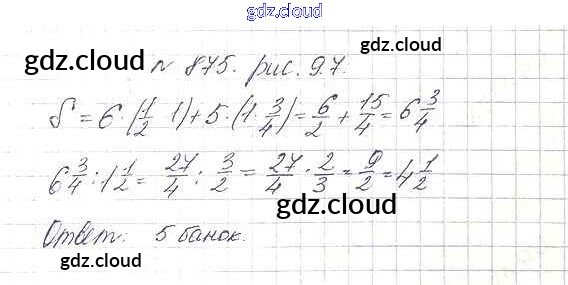 gdz.cloud
gdz.cloud № 875. рис. 9.7. gdz.cloud
S = 6 · (1/2 · 1) + 5 · (1 · 3/4) = 6/2 + 15/4 = 6 3/4
6 3/4 : 1 1/2 = 27/4 : 3/2 = 27/4 · 2/3 = 9/2 = 4 1/2
gdz.cloud
Ответ: 5 банок.
gdz.cloud
gdz.cloud